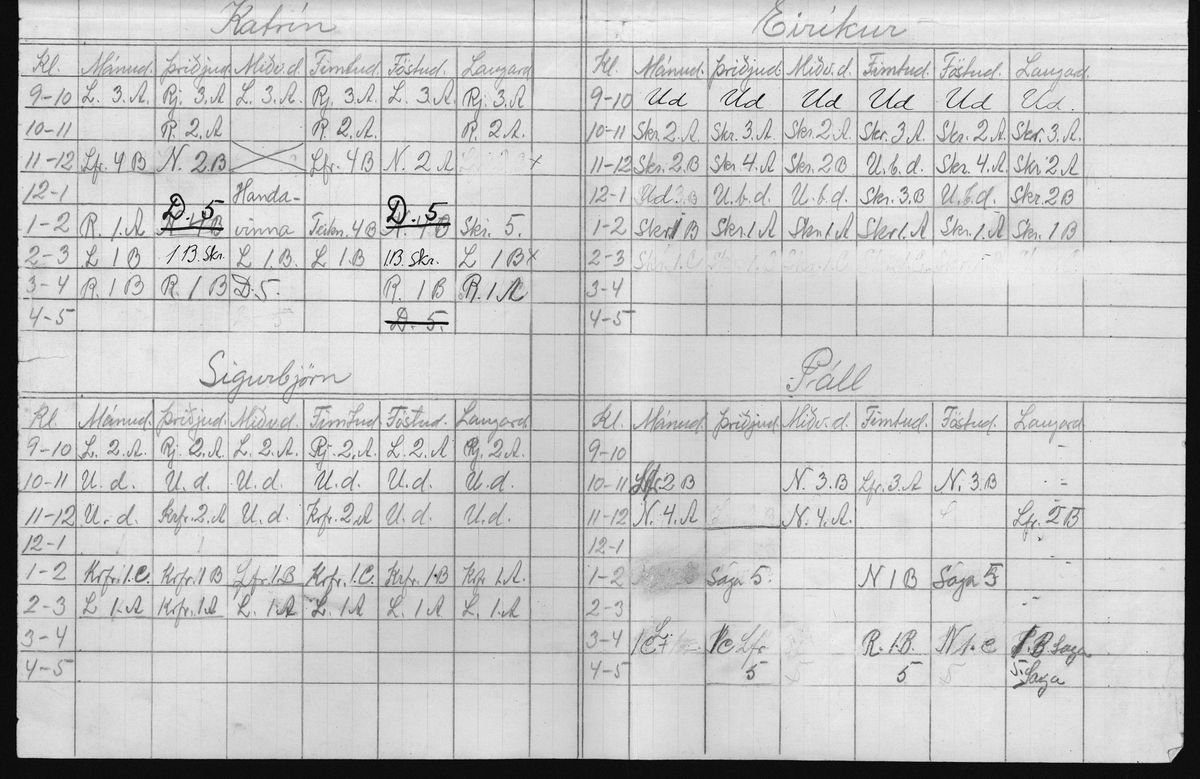 Katrín
Kl. Mánud. Þriðjud. Miðv.d. Fimtud. Föstud. Laugard.
9-10 L. 3. A. Rj. 3. A L. 3. A. Rj. 3. A. L. 3. A Rj. 3. A
10-11 R. 2. A R. 2. A. R. 2. A.
11-12 Lfr. 4 B N. 2 B Lfr. 4 B N. 2 A x
12-1 Handa-
D. 5 D. 5
1-2 R. 1. A vinna Teikn. 4 B Skr. 5.
2-3 L 1 B 1 B. Skr. L 1. B. L 1. B 1 B. Skr. L 1 B x
3-4 R. 1 B R. 1 B D. 5. R. 1 B R. 1 A
4-5 D. 5.
Eiríkur
Kl. Mánud. Þriðjud. Miðv.d. Fimtud. Föstud. Laugard.
9-10 Ud Ud Ud Ud Ud Ud.
10-11 Skr. 2. A Skr. 3. A Skr. 2 A Skr. 3. A Skr. 2 A Skr. 3. A
11-12 Skr. 2. B Skr. 4. A Skr. 2 B U. b. d. Skr. 4. A Skr. 2 A
12-1 Ud. 3. B U. b. d. U. b. d. Skr. 3. B U. b. d. Skr. 2 B
1-2 Skr. 1 B Skr. 1 A Skr. 1 A Skr 1. A Skr. 1. A Skr. 1 B
2-3 Skr. 1. C
3-4
4-5
Sigurbjörn
Kl. Mánud. Þriðjud. Miðv.d. Fimtud. Föstud. Laugard.
9-10 L. 2. A. Rj. 2. A. L. 2. A. Rj. 2. A. L. 2. A Rj. 2. A
10-11 U. d. U. d. U. d. U. d. U. d. U. d.
11-12 U. d Krfr. 2. A U. d. Krfr. 2. A U. d. U. d.
12-1
1-2 Krfr. 1. C. Krfr. 1 B Lfr. 1. B Krfr. 1. C. Krfr. 1. B Krfr. 1. A.
2-3 L 1. A Krfr. 1. A L. 1. A L. 1. A L. 1 A L. 1. A
3-4
4-5
Páll
Kl. Mánud. Þriðjud. Miðv.d. Fimtud. Föstud. Laugard.
9-10 -
10-11 Lfr. 2 B N. 3. B Lfr. 3. A N. 3. B -
11-12 N. 4. A N. 4. A. Lfr. 2 B
12-1
1-2 Saga 5. N 1 B Saga 5 -
2-3 -
3-4 1 C 1 C Lfr R. 1. B. N 1. C 1. B Saga
4-5 5 5 5 5. Saga